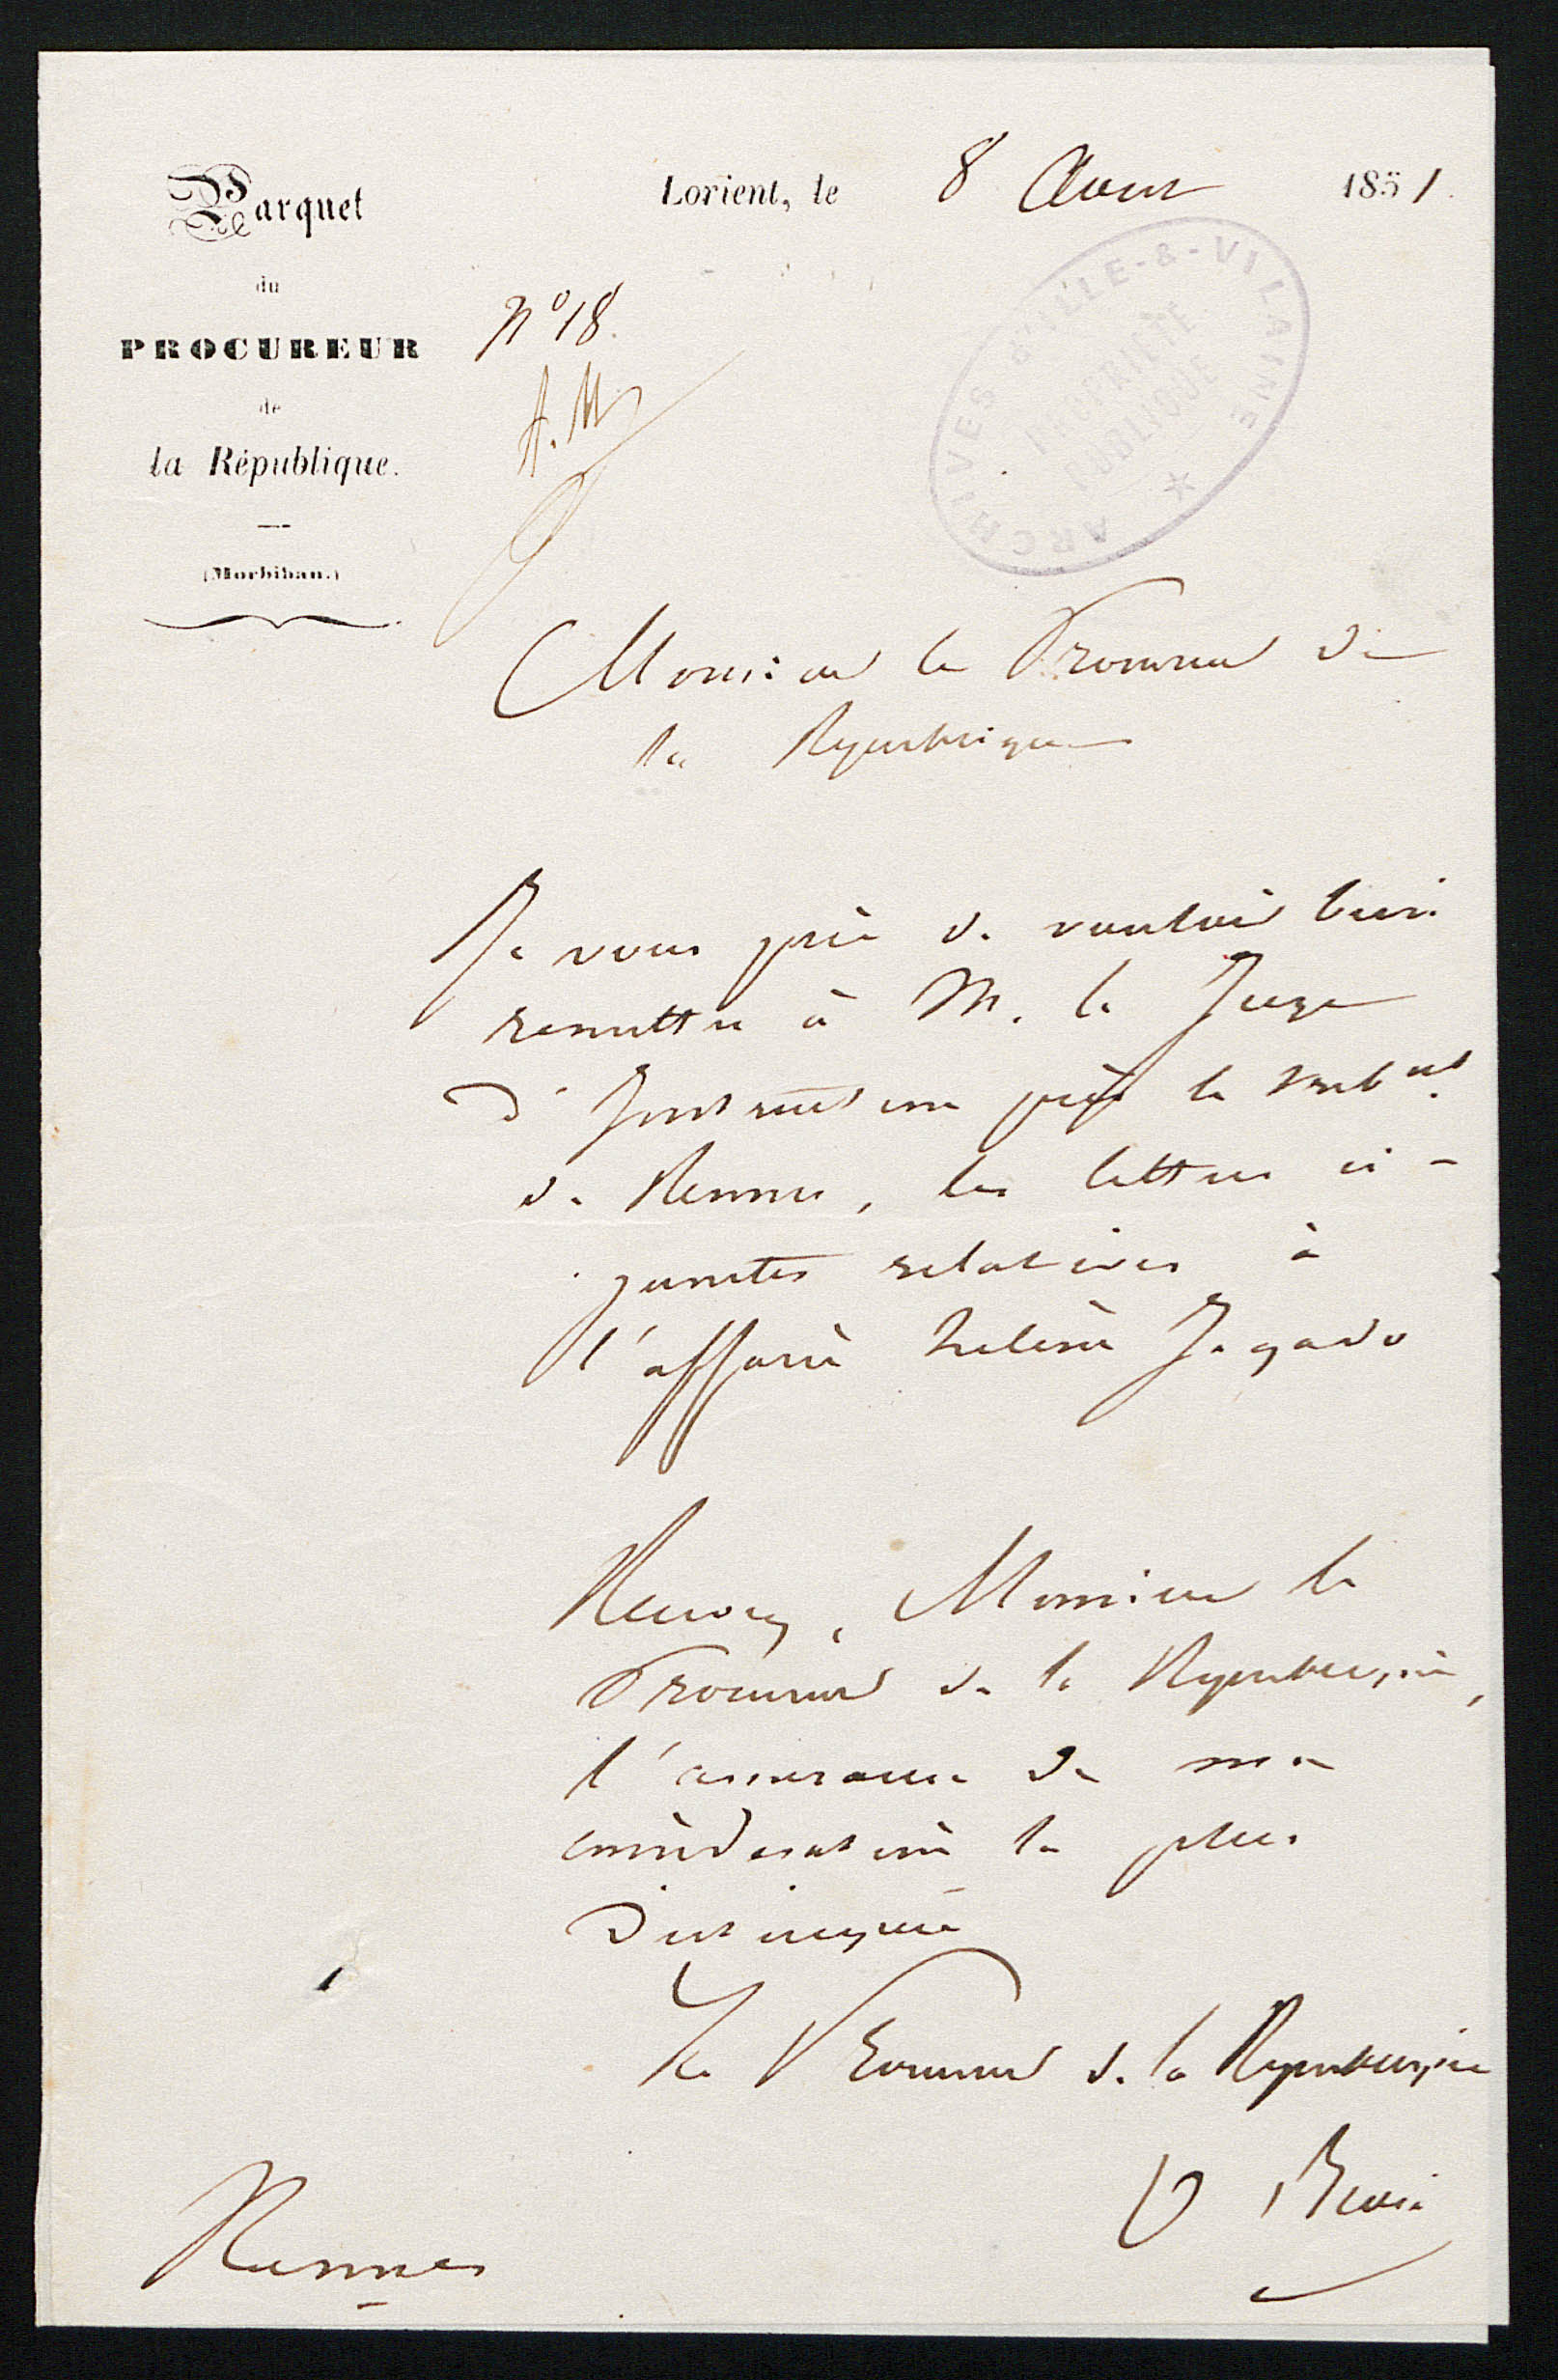 Parquet
du
PROCUREUR
de
la République.
(Morbihan.)
Lorient, le 8 Aout 1851.
N° 18.
A. M
ARCHIVES D'ILLE-&-VILAINE
PROPRIÉTÉ
PUBLIQUE
Monsieur le Procureur de
la République
Je vous prie de vouloir bien
remettre à M. le Juge
d'Instruction près le trib.al
de Rennes, les lettres ci-
jointes relatives à
l'affaire helène Jegado
Recevez, Monsieur le
Procureur de la République,
l'assurance de ma
considération la plus
distinguée
Le Procureur de la République
Rennes